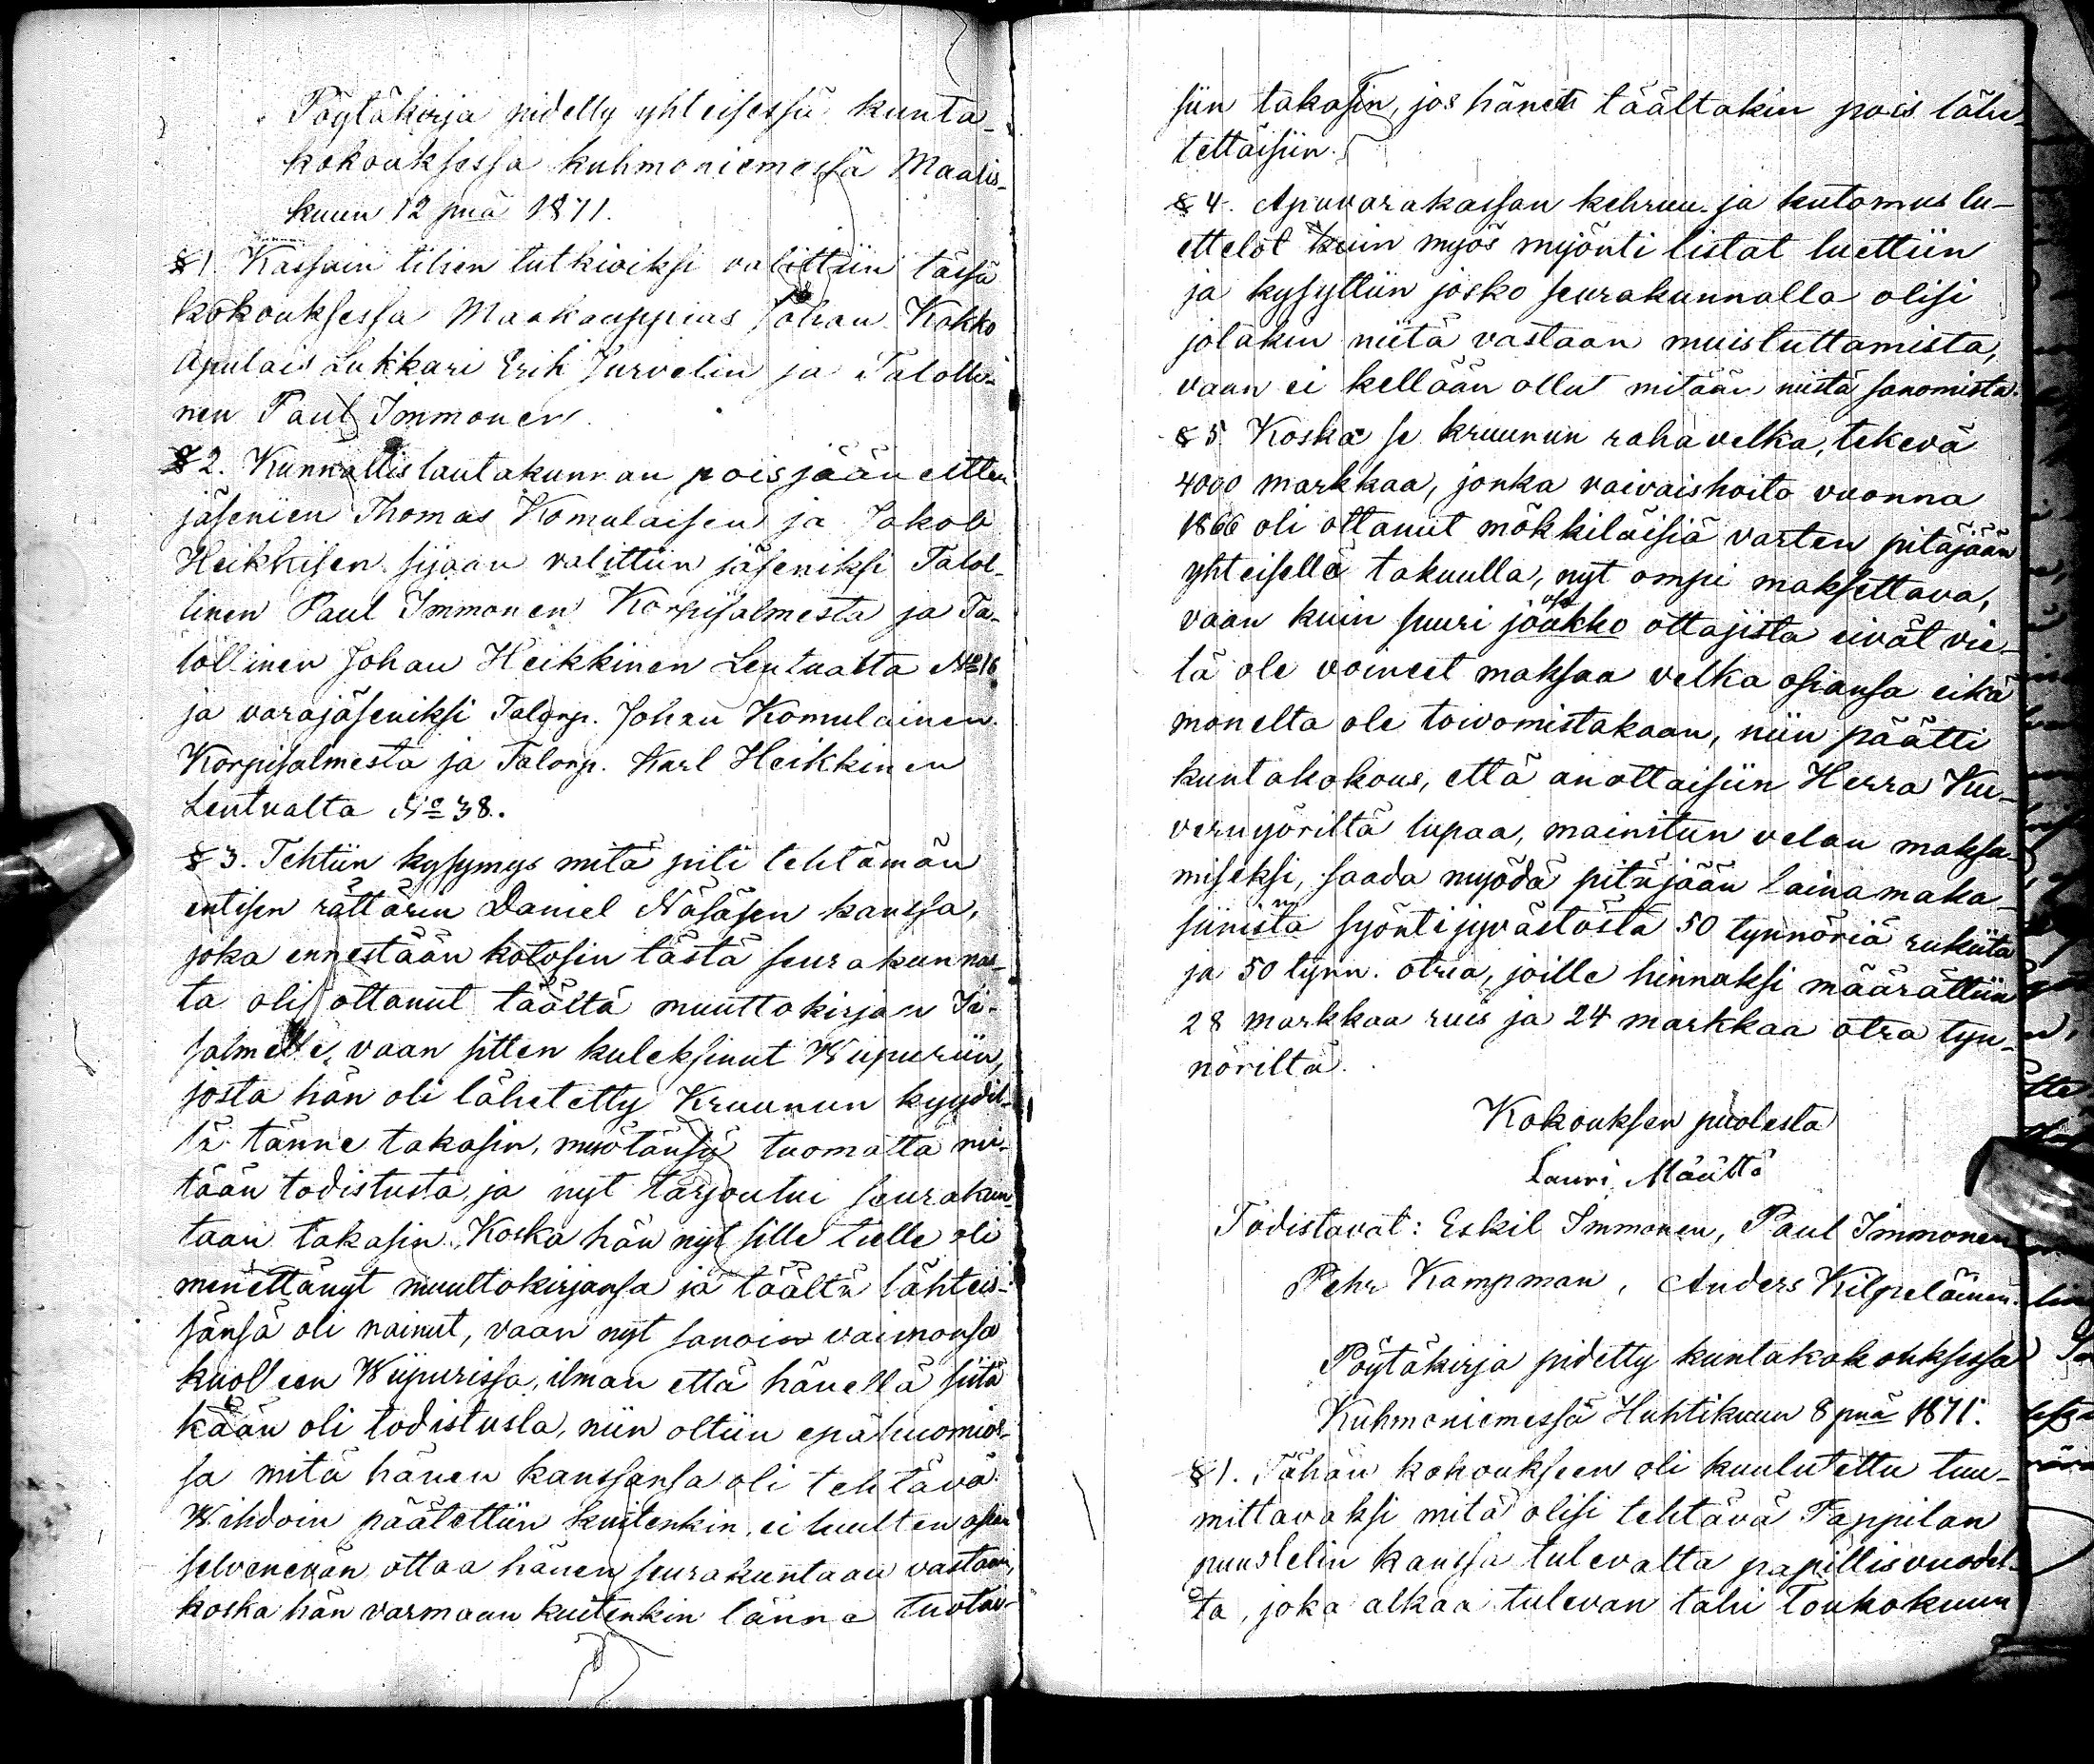 Pöytäkirja pidetty yhteisessä kunta-
kokouksessa kuhmoniemessä Maalis-
kuun 12 pnä 1871.
§ 1. Kassain tilien tutkioiksi valittiin tässä
kokouksessa Maakauppias Johan Kokko
Apulais Lukkari Erik Jurvelin ja Talolli-
nen Paul Immonen.
§ 2. Kunnallislautakunnan poisjääneitten
jäsenien Thomas Komulaisen ja Jakob
Heikkisen sijaan valittiin jäseniksi Talol-
linen Paul Immonen Korpisalmesta ja Ta-
lollinen Johan Heikkinen Lentualta No 16
ja varajäseniksi Talonp. Johan Komulainen
Korpisalmesta ja Talonp. Karl Heikkinen
Lentualta No 38.
§ 3. Tehtiin kysymys mitä piti tehtämän
entisen rättärin Daniel Näsäsen kanssa,
joka ennestään kotosin tästä seurakunnas-
ta oli ottanut täältä muuttokirjan Ii-
salmelle, vaan sitten kuleksinut Wiipuriin,
josta hän oli lähetetty Kruunun kyydil-
lä tänne takasin, muötänsä tuomatta mi-
tään todistusta, ja nyt tarjoutui seurakun-
taan takasin. Koska hän nyt sille tielle oli
menettänyt muuttokirjansa ja täältä lähteis-
sänsä oli nainut, vaan nyt sanoin vaimonsa
kuolleen Wiipurissa, ilman että hänellä siitä
kään oli todistusta, niin oltiin epäluomios-
sa mitä hänen kanssansa oli tehtävä.
Wihdoin päätettiin kuitenkin, ei luulten asian
selvenevän ottaa hänen seurakuntaan vastaan,
koska hän varmaan kuitenkin tänne tuotai-
siin takasin, jos hänet täältäkin pois lähe-
tettäisiin.
§ 4. Apuvarakassan kehruu- ja kutomus lu-
ettelot kuin myös myönti listat luettiin
ja kysyttiin josko seurakunnalla olisi
jotakin niitä vastaan muistuttamista,
vaan ei kellään ollut mitään niistä sanomista.
§ 5. Koska se kruunun rahavelka, tekevä
4000 markkaa, jonka vaivaishoito vuonna
1866 oli ottanut mökkiläisiä varten pitäjään
yhteisellä takuulla, nyt ompi maksettava,
vaan kuin suuri joukko osa ottajista eivät vie-
lä ole voineet maksaa velka osiansa eikä
monelta ole toivomistakaan, niin päätti
kuntakokous, että anottaisiin Herra Ku-
vernyöriltä lupaa, mainitun velan maksa-
miseksi, saada myödä pitäjään lainamaka-
siinin syöntijyvästöstä 50 tynnöriä rukiita
ja 50 tynn. otria, joille hinnaksi määrättiin
28 markkaa ruis ja 24 markkaa otra tyn-
nöriltä.
Kokouksen puolesta
Lauri Määttä
Todistavat: Eskil Immonen, Paul Immonen
Pehr Kampman, Anders Kilpeläinen.
Pöytäkirja pidetty kuntakokouksessa
Kuhmoniemessä Huhtikuun 8 pnä 1871.
§ 1. Tähän kokoukseen oli kuulutettu tuu-
mittavaksi mitä olisi tehtävä Pappilan
puustelin kanssa tulevalta papillisvuodel-
ta, joka alkaa tulevan tahi Toukokuun